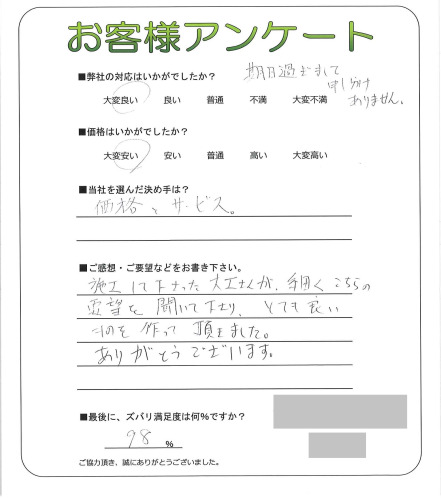 お客様アンケート
■弊社の対応はいかがでしたか?
期日過ぎまして
申し分け
ありません。
大変良い 良い 普通 不満 大変不満
■価格はいかがでしたか?
大変安い 安い 普通 高い 大変高い
■当社を選んだ決め手は?
価格とサービス。
■ご感想・ご要望などをお書き下さい。
施工して下さった大工さんが、手早くこちらの
要望を聞いて下さり、とても良い
ものを作って頂きました。
ありがとうございます。
■最後に、ズバリ満足度は何%ですか?
98 %
ご協力頂き、誠にありがとうございました。